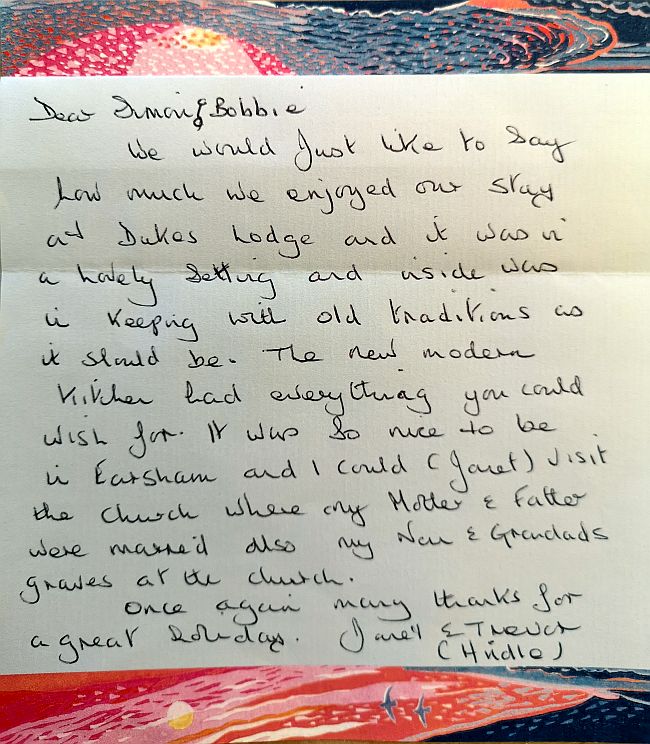 Dear Simon & Bobbie
We would Just like to Say
how much we enjoyed our stay
at Dukes Lodge and it was in
a Lovely Setting and inside was
in Keeping with old traditions as
it should be. The new modern
Kitchen had everything you could
wish for. It was So nice to be
in Earsham and I could (Janet) visit
the church where my Mother & Father
were married also my Nan & Grandads
graves at the church.
Once again many thanks for
a great Holiday. Janet & Trevor
(Hindle)